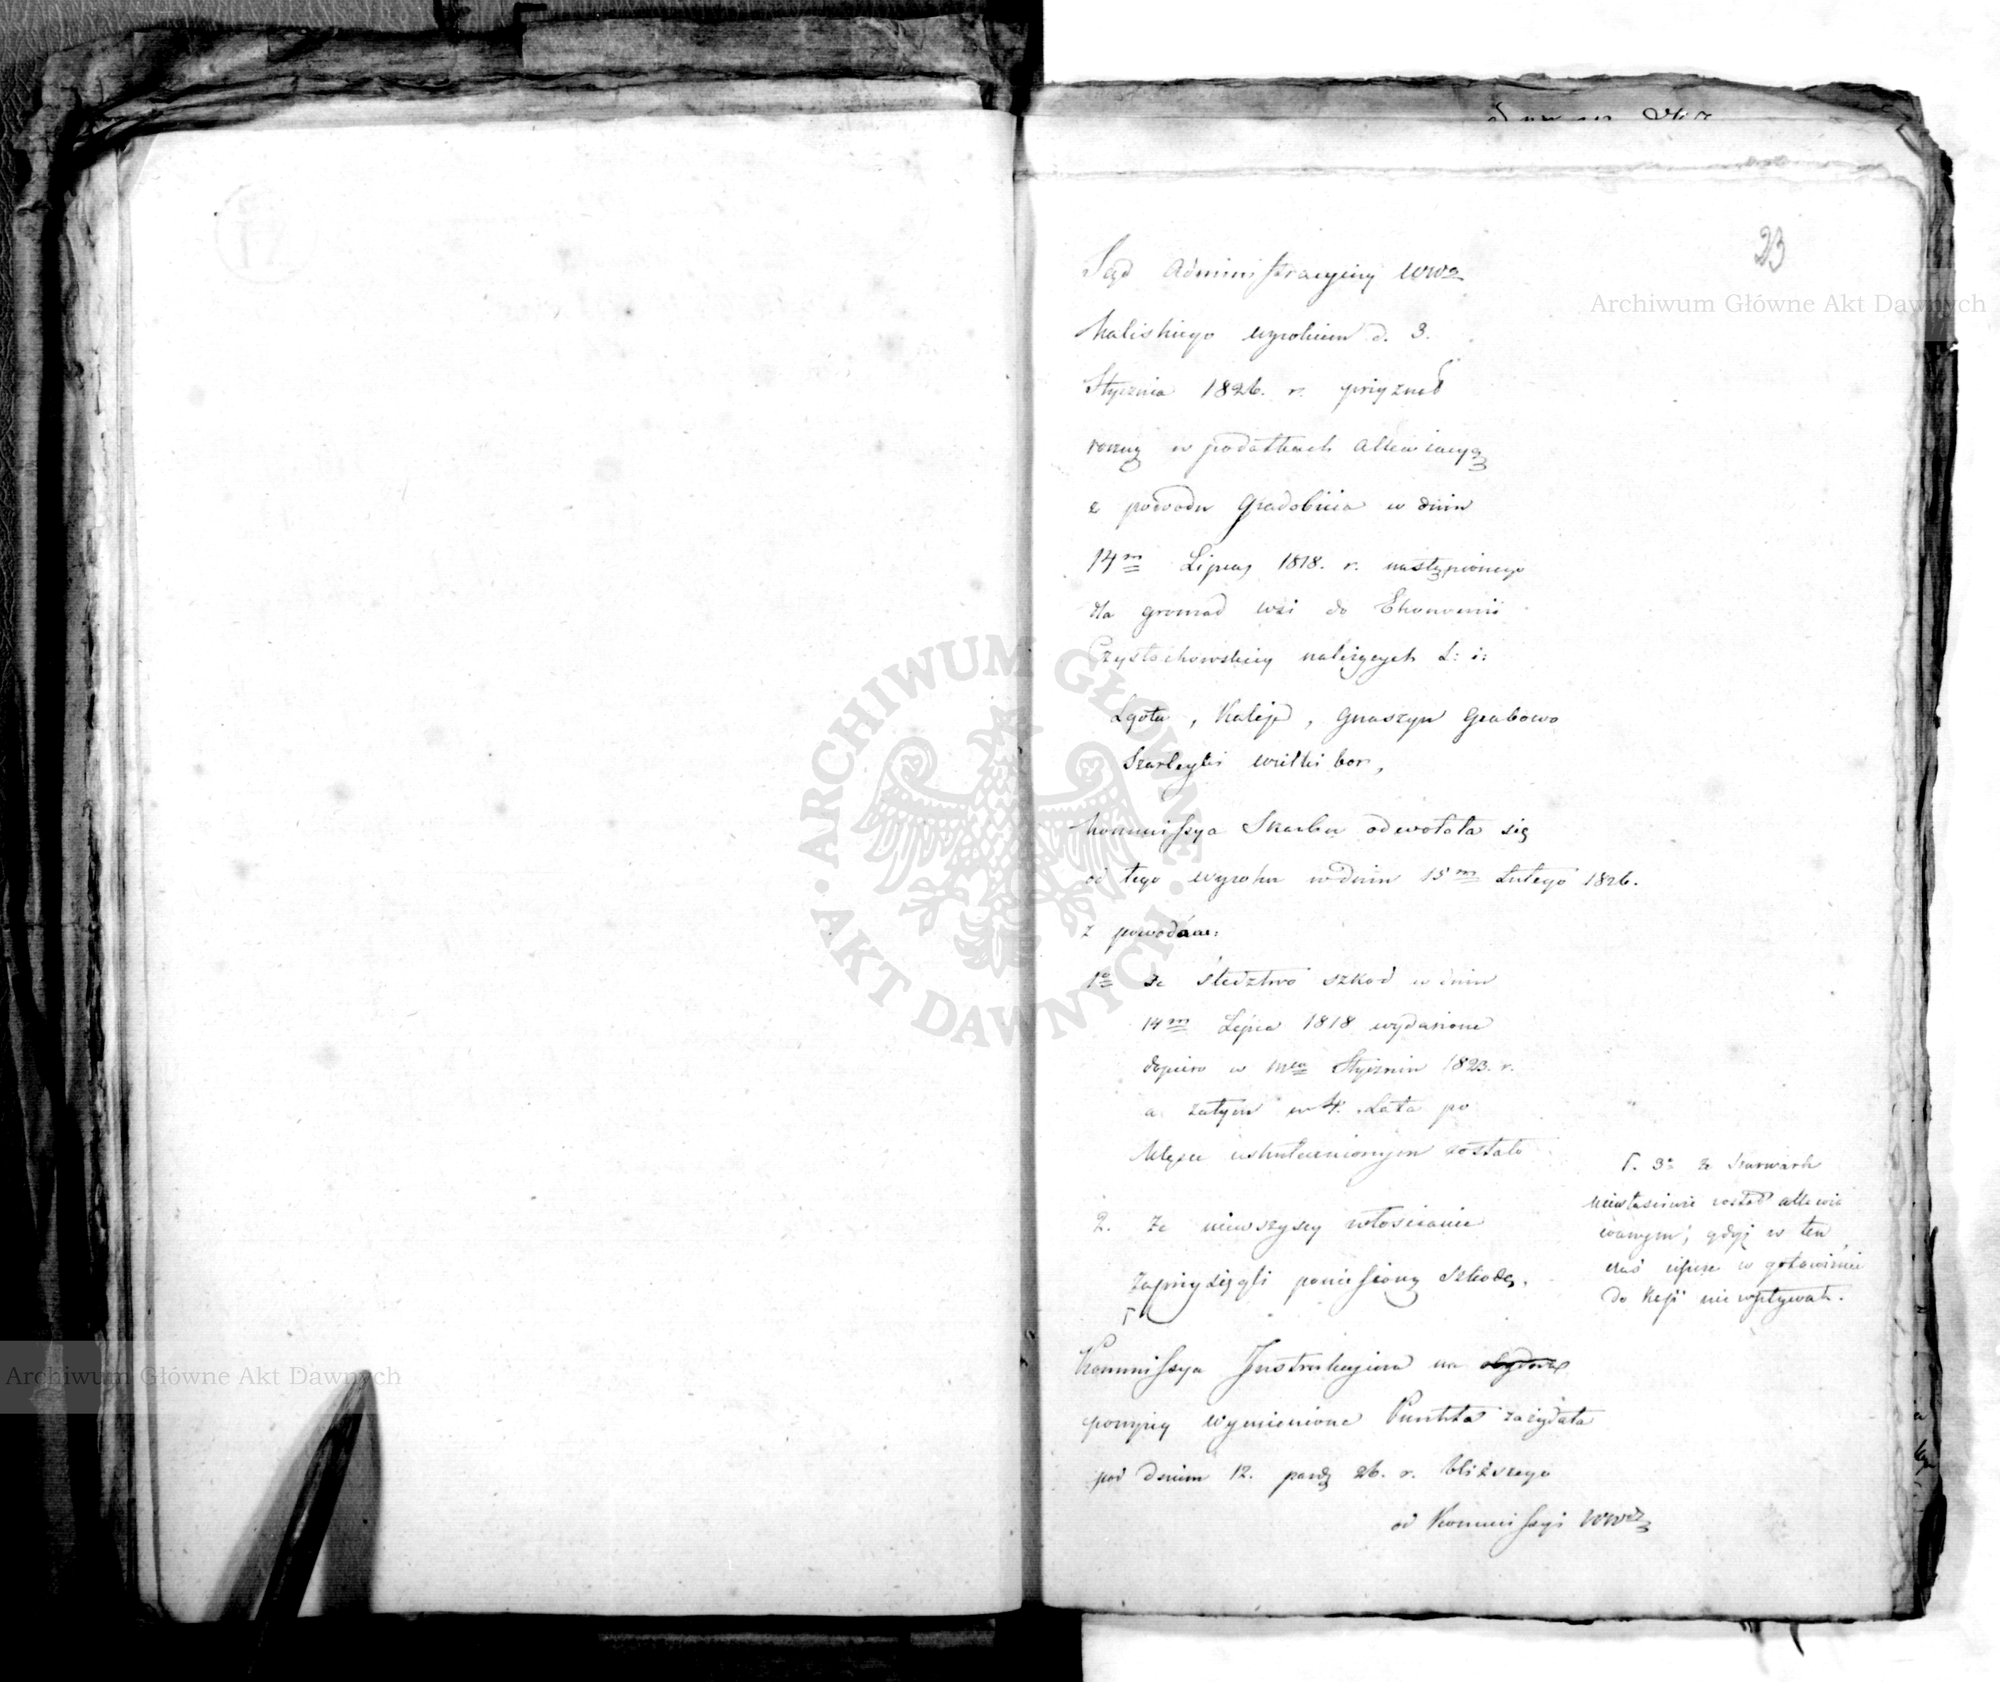 23
Sąd Administracyiny WWa
Kaliskiego wyrokiem d. 3.
Stycznia 1826. r. przyznał
roczną w podatkach allewiacyą
z powodu gradobicia w dniu
14m Lipca 1818. r. nastąpionego
dla gromad wsi do Ekonomii
Częstochowskiey należących t: i:
Lgota, Kaleje, Gnaszyn Grabowo
Szarleyki wielki bor,
Kommissya Skarbu odwołała się
od tego wyroku w dniu 15m Lutego 1826.
z powodów:
1o że śledztwo szkod w dniu
14m Lipca 1818 wydarzone
dopiero w mcu Styczniu 1823. r.
a zatym w 4. Lata po
klęsce uskutecznionym zostało
2. Że niewszyscy włościanie
zaprzysięgli poniesioną szkodę.
Γ
Γ. 3o że szarwark
niewłaściwie został allewio
wanym; gdyż w ten
czas ieszcze w gotowiźnie
do Kassy nie wpływał.
Kommissya Instrukcyina na
powyżey wymienione Punkta zażądała
pod dniem 12. paźdz 26. r. bliższego
od Kommissyi WWdz
Archiwum Główne Akt Dawnych
Archiwum Główne Akt Dawnych
ARCHIWUM GŁÓWNE AKT DAWNYCH